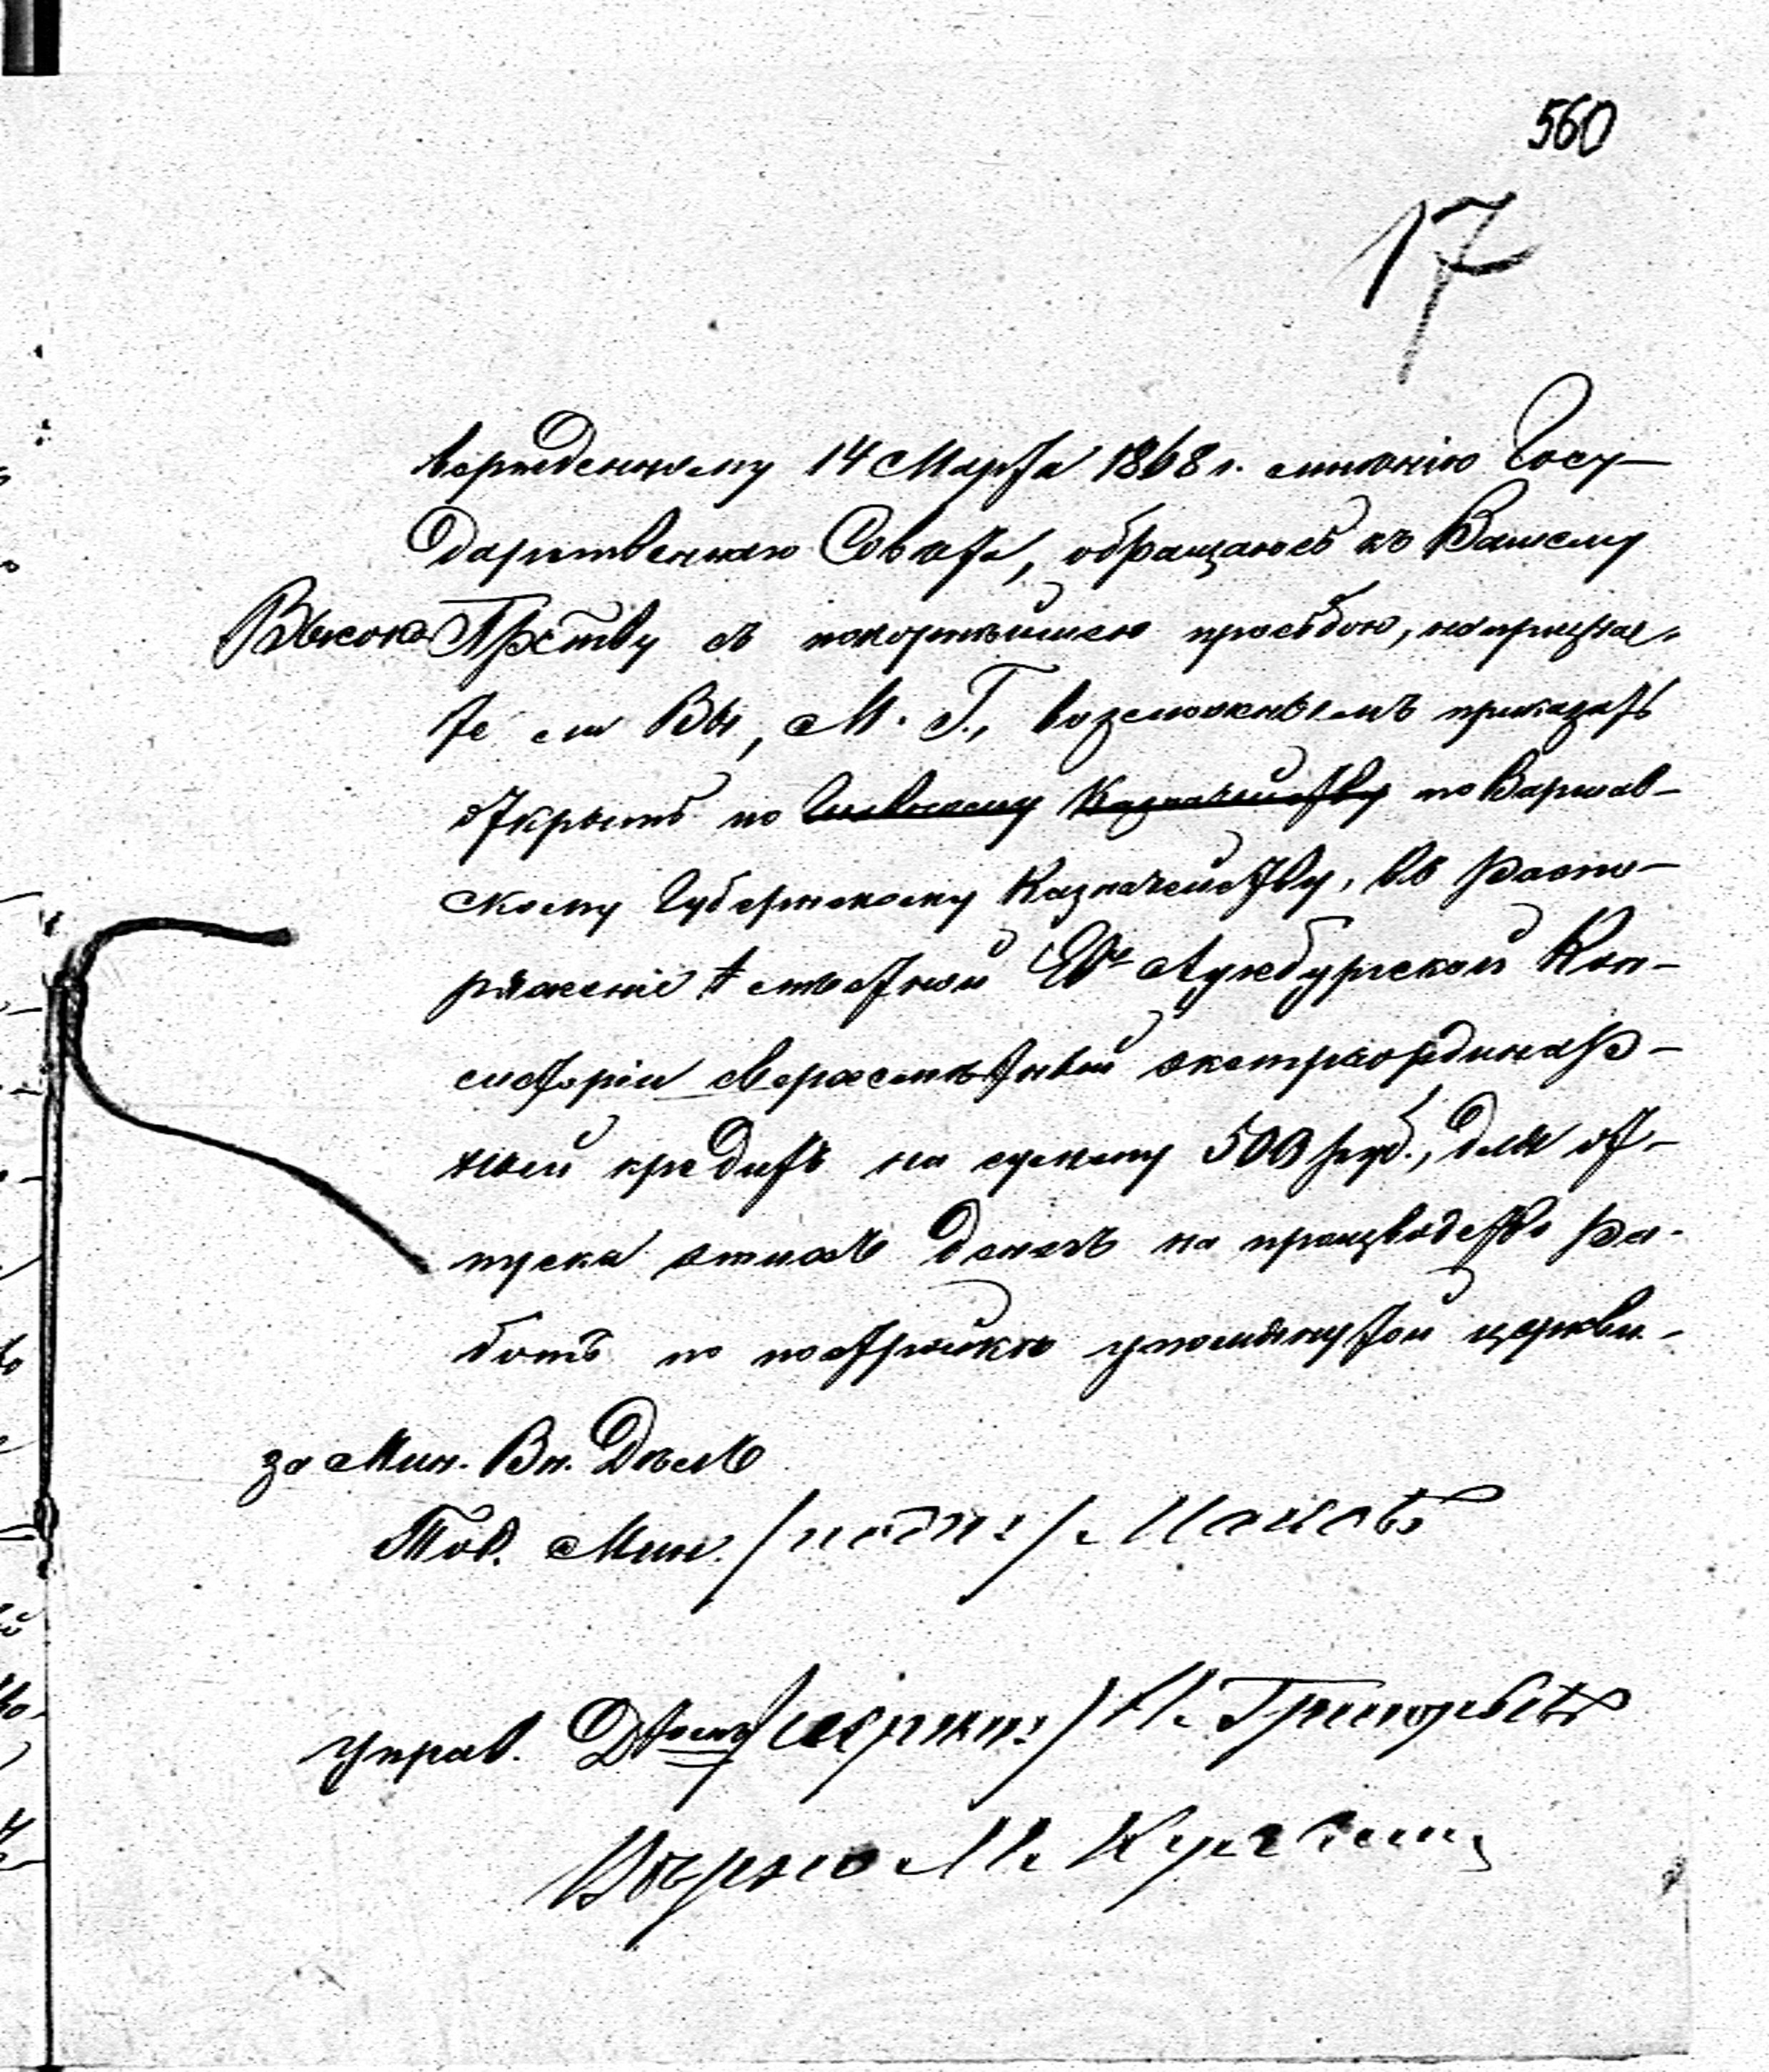 560
17
вержденному 14 Марта 1868 г. мнѣнію Госу-
дарственнаго Совѣта, обращаюсь къ Вашему
Высоко Прству съ покорнѣйшею просьбою, не признае-
те ли Вы, М. Г., возможнымъ приказать
открыть по Казначейству по Варшав-
скому Губернскому Казначейству, въ распо-
ряженіе мѣстной Ев. Аугсбургской Кон-
систоріи сверхсмѣтный экстраординар-
ный кредитъ на сумму 500 руб., для от-
пуска этихъ денегъ на производство ра-
ботъ по постройкѣ упомянутой церкви.
за Мин. Вн. Дѣлъ
Тов. Мин. /подп:/ Маковъ
Управ. /скрѣп:/ Григорьевъ
Вѣрно: